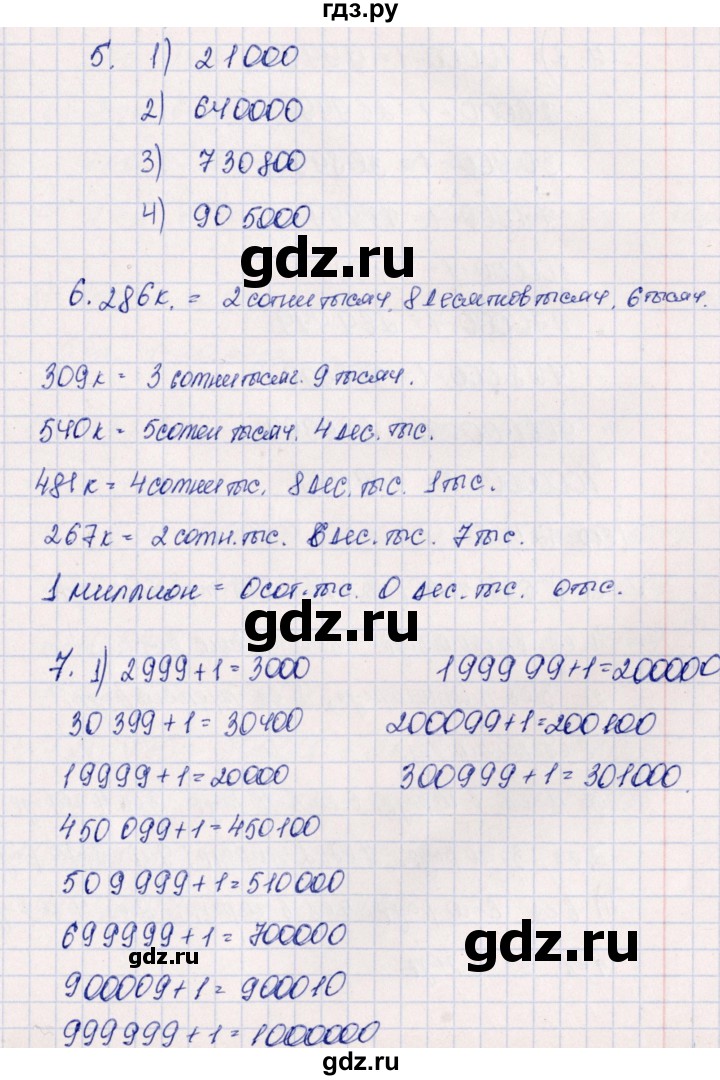 гдз.ру
5. 1) 21000
2) 640000
3) 730800
4) 905000
gdz.ru
6. 286к. = 2 сотни тысяч, 8 десятков тысяч, 6 тысяч.
309к = 3 сотни тысяч. 9 тысяч.
540к = 5 сотен тысяч. 4 дес. тыс.
481к = 4 сотни тыс. 8 дес. тыс. 1 тыс.
267к = 2 сотн. тыс. 6 дес. тыс. 7 тыс.
1 миллион = 0 сот. тыс. 0 дес. тыс. 0 тыс.
gdz.ru
7. 1) 2999+1=3000 199999+1=200000
30 399+1=30400 200099+1=200100
19999+1=20000 300999+1=301000.
450 099+1=450100
509 999+1=510000
699999+1=700000
gdz.ru
gdz.ru
900009+1=900010
999999+1=1000000
gdz.ru